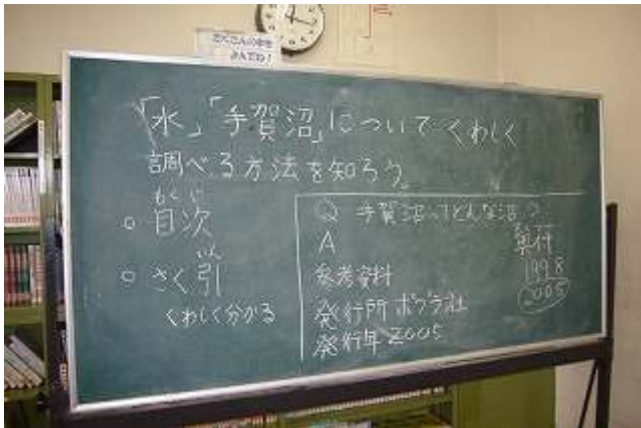 たくさんの本を
よんでね!
「水」「手賀沼」についてくわしく
調べる方法を知ろう。
もくじ
○ 目次
いん
○ さく引
くわしく分かる
Q 手賀沼ってどんな沼?
A
参考資料
発行所 ポプラ社
発行年 2005
1998
2005